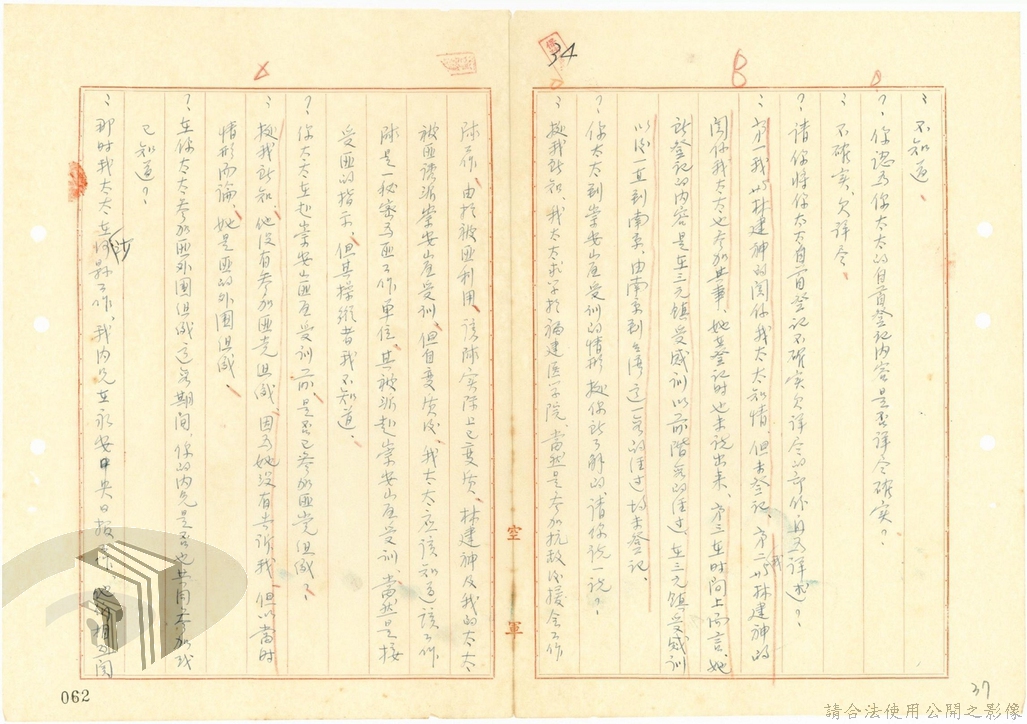 ：不知道、
？你認為你太太的自首登記內容是否詳尽確实？
：不確实、欠詳尽、
？請你將你太太自首登記不確实欠詳尽的部份自為詳述？
：第一我与林建神的関係我太太知情、但未登記、第二我与林建神的
関係我太太也參加其事、她在登記時也未說出來、第三在时间上而言、她
所登記的內容是在三元鎮受感訓以前階段的经过、在三元鎮受感訓
以後一直到南平、由南平到台湾這一段的经过均未登記、
？你太太到崇安山区受訓的情形据你所了解的請你說一說？
：据我所知、我太太求学於福建医学院、當然是參加抗敌後援会工作
隊工作、由於被匪利用、該隊实际上已变质、林建神及我的太太
被匪誘派崇安山区受訓、但自变质後、我太太应該知道該工作
隊是一秘密為匪工作单位、其被派赴崇安山区受訓、當然是接
受匪的指示、但其操縱者我不知道、
？你太太在赴崇安山匪区受訓前是否已參加匪党组織？
：据我所知、他沒有參加匪党组織、因為她沒有告訴我、但以當时
情形而論、她是匪的外围组織、
？在你太太參加匪外围组織這段期间、你的內兄是否也共同參加或
已知道？
：那时我太太在沙縣工作、我內兄在永安中央日报工作、他们相互関
空
軍
34
37
062
請合法使用公開之影像